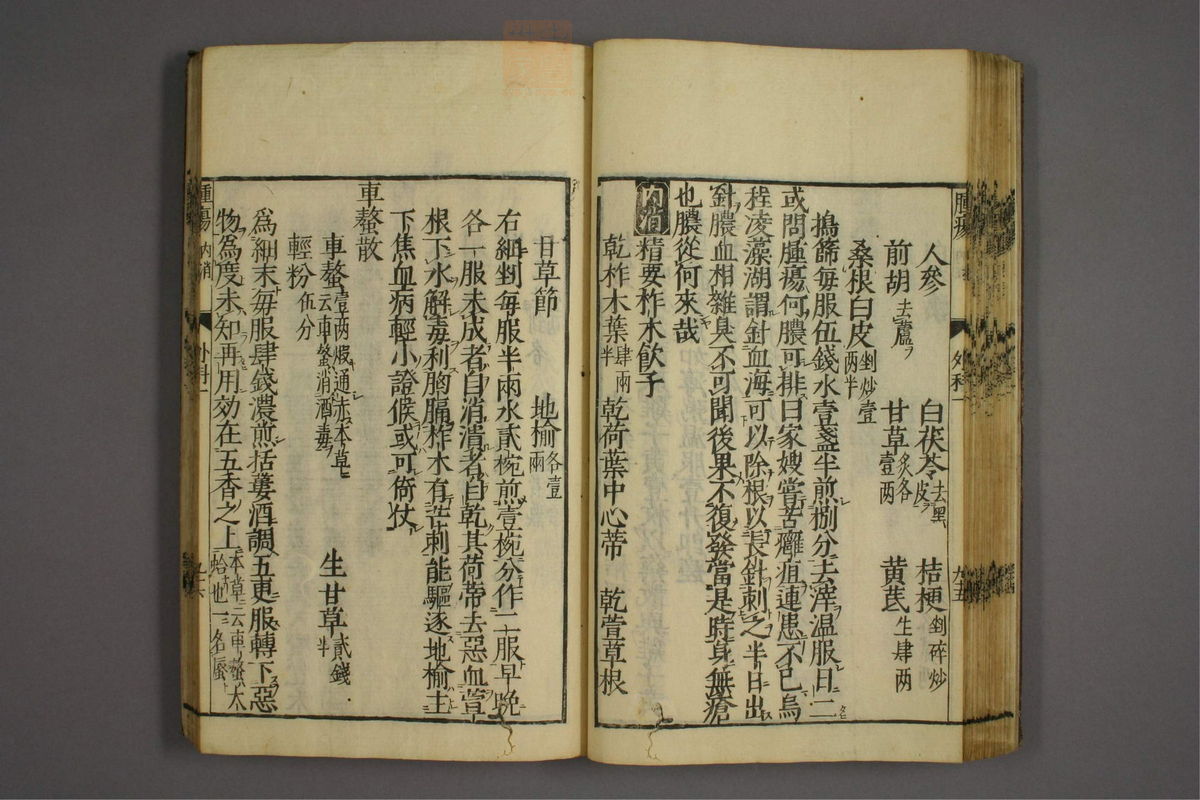 人參 白茯苓去黑皮 桔梗剉碎炒
前胡去蘆 甘草炙各壹兩 黄芪生肆两
桑根白皮剉炒壹两半
搗篩每服伍錢水壹盞半煎捌分去滓温服日二
或問腫瘍何膿可排曰家嫂嘗苦癰疽連患不已烏
程凌藻湖謂針血海可以除根以長針刺之半日出
針膿血相雜臭不可聞後果不復發當是時身無瘡
也膿從何來哉
内消 精要柞木飲子
乾柞木葉肆兩半 乾荷葉中心蒂 乾萱草根
甘草節 地榆各壹兩
右細剉每服半兩水貳椀煎壹椀分作二服早晩
各一服未成者自消潰者自乾其荷蒂去惡血萱
根下水解毒利胸膈柞木有芒刺能驅逐地榆主
下焦血病輕小證候或可倚仗
車螯散
車螯壹两煅通赤本草云車螯消酒毒 生甘草貳錢半
輕粉伍分
爲細末每服肆錢濃煎括蔞酒調五更服轉下惡
物爲度未知再用効在五香之上本草云車螯大蛤也一名蜃
腫瘍 内消 外科一 九六
腫瘍 外科一 九五